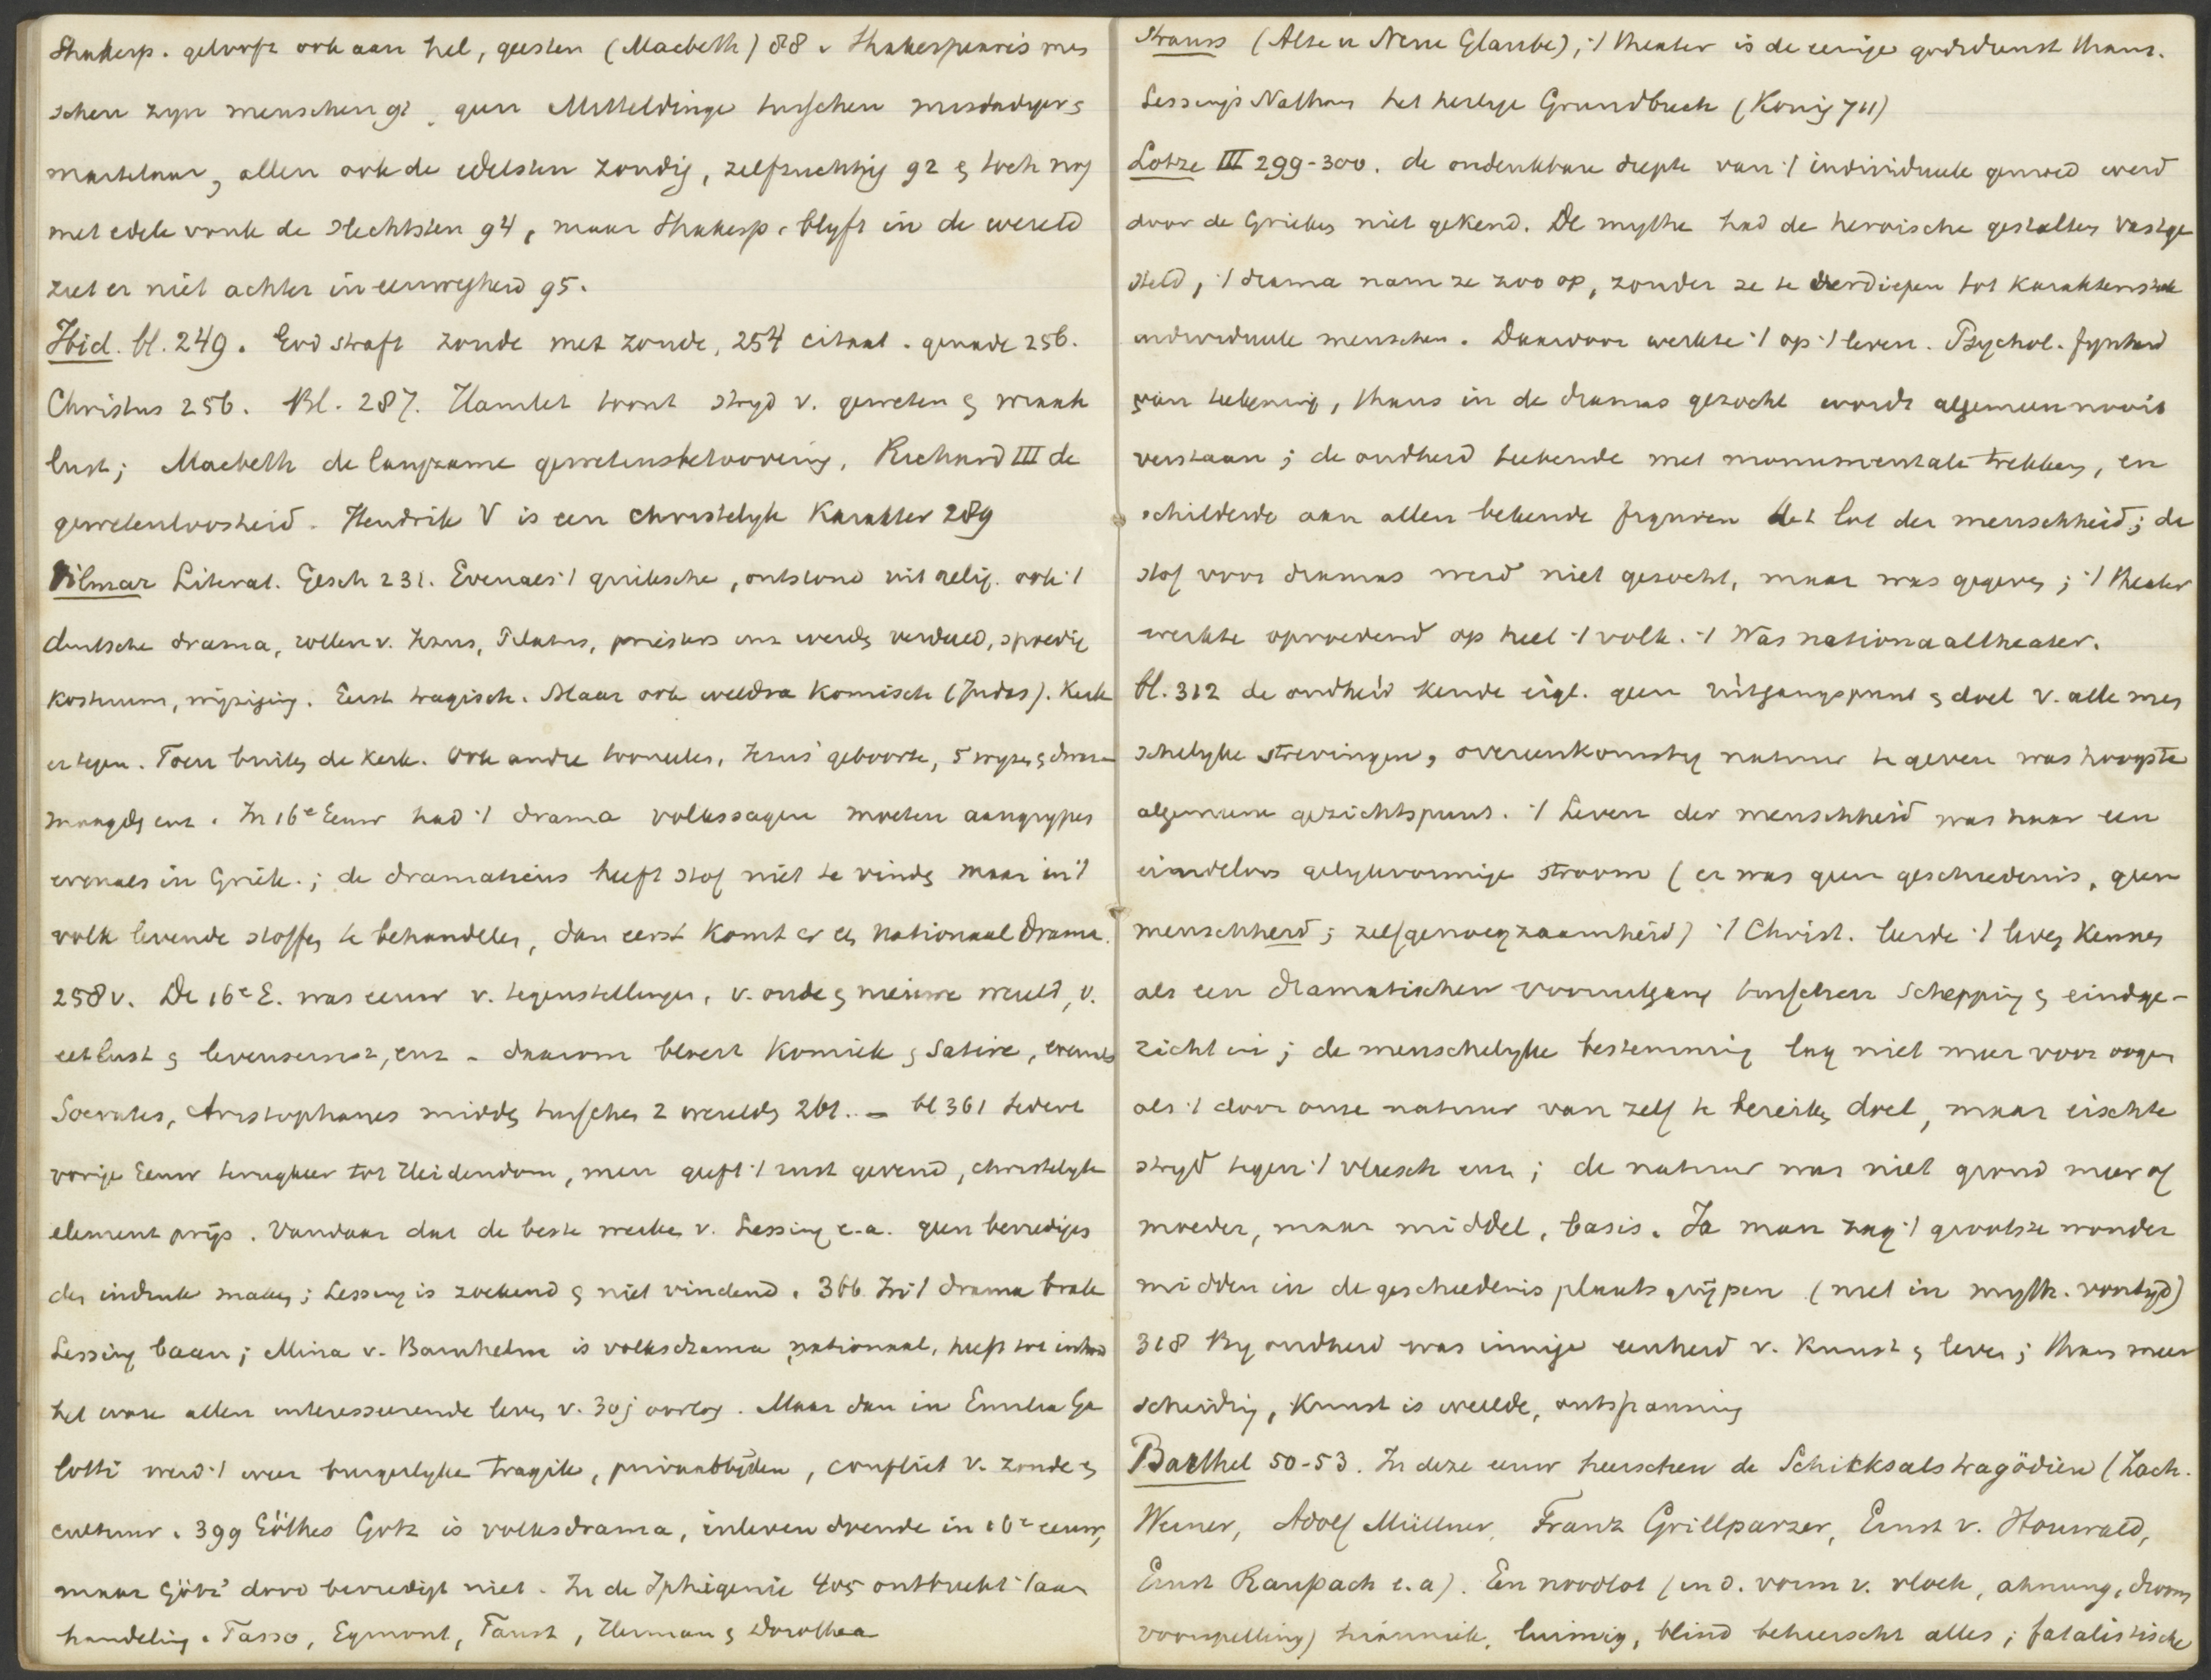 Shakesp. gelooft ook aan hel, geesten (Macbeth) 88 v Shakespeare's men
schen zyn menschen 91, geen Mitteldinge tusschen misdadiger &
martelaar, allen ook de edelsten zondig, zelfzuchtig 92 & toch nog
met edele vonk de slechtsten 94, maar Shakesp. blyft in de wereld
ziet er niet achter in eeuwigheid 95.
Ibid. bl. 249. God straft zonde met zonde, 254 citaat. genade 256.
Christus 256. Bl. 287. Hamlet toont stryd v. geweten & wraak
lust; Macbeth de langzame gewetensbetoovering, Richard III de
gewetenloosheid. Hendrik V is een christelyk Karakter 289
Vilmar Literat. Gesch 231. Evenals 't grieksche, ontstond uit relig. ook 't
duitsche drama, rollen v. Jezus, Pilatus, priesters enz werdn verdeeld, spoedig
kostuum, wyziging. Eerst tragisch. Maar ook weldra komisch (Judas). Kerk
er tegen. Toen buiten de kerk. Ook andre tooneelen, Jezus' geboorte, 5 wyze & dwaze
maagdn enz. In 16e Eeuw had 't drama volkssagen moeten aangrypen
evenals in Griek.; de dramaticus heeft stof niet te vinden maar in 't
volk levende stoffen te behandelen, dan eerst komt er een nationaal drama.
258 v. De 16e E. was eeuw v. tegenstellingen, v. oude & nieuwe wereld, v.
eetlust & levensernst, enz - daarom bloeit Komiek & Satire, evenals
Socrates, Aristophanes midden tusschen 2 werelden 261. - bl 361 Sedert
vorige Eeuw terugkeer tot Heidendom, men geeft 't rust gevend, christelyk
element prys. Vandaar dat de beste werken v. Lessing e.a. geen bevredigen
den indruk maken; Lessing is zoekend & niet vindend. 366 In 't drama brak
Lessing baan; Mina v. Barnhelm is volksdrama, nationaal, heeft tot inhoud
het ware allen interesseerende leven v. 30j oorlog. Maar dan in Emilia Ga
lotti werd 't weer burgerlyke tragik, privaatlyden, conflict v. zonde &
cultuur. 399 Göthes Gotz is volksdrama, inleven doende in 16e eeuw,
maar Götz' dood bevredigt niet. In de Iphigenie 405 ontbreekt 't aan
handeling. Tasso, Egmont, Faust, Herman & Dorothea
Strauss (Alte u Neue Glaube), 't theater is de eenige godsdienst thans.
Lessing's Nathan het heilige Grundbuch (Konig 711)
Lotze III 299-300. de ondenkbare diepte van 't individueele gemoed werd
door de Grieken niet gekend. De mythe had de heroische gestalten vastge
steld, 't drama nam ze zoo op, zonder ze te verdiepen tot karakteristiek
individueele menschen. Daardoor werkte 't op 't leven. Psychol. fynheid
van teekening, thans in de dramas gezocht wordt algemeen nooit
verstaan; de oudheid teekende met monumentale trekken, en
schilderde aan allen bekende figuren het lot der menschheid; de
stof voor dramas werd niet gezocht, maar was gegeven; 't theater
werkte opvoedend op heel 't volk. 't Was nationaaltheater.
bl. 312 de oudheid kende eigl. geen uitgangspunt & doel v. alle men
schelyke strevingen, overeenkomstig natuur te leven was hoogste
algemeene gezichtspunt. 't Leven der menschheid was haar een
eindeloos gelykvormige stroom (er was geen geschiedenis, geen
menschheid; zelfgenoegzaamheid) 't Christ. leerde 't leven kennen
als een dramatischen vooruitgang tusschen schepping & eindge-
zicht in; de menschelyke bestemming lag niet meer voor oogen
als 't door onze natuur van zelf te bereiken doel, maar eischte
stryd tegen 't vleesch enz; de natuur was niet grond meer of
moeder, maar middel, basis. Ja men zag 't grootste wonder
midden in de geschiedenis plaats grijpen (niet in myth. voortijd)
318 By oudheid was innige eenheid v. Kunst & leven; thans meer
scheiding, Kunst is weelde, ontspanning
Barthel 50-53. In deze eeuw heerschen de Schicksalstragödien (Zach.
Werner, Adolf Müllner, Franz Grillparzer, Ernst v. Houwald,
Ernst Raupach e.a). Een noodlot (in d. vorm v. vloek, ahnung, droom
voorspelling) tirannick, luimig, blind beheerscht alles; fatalistische